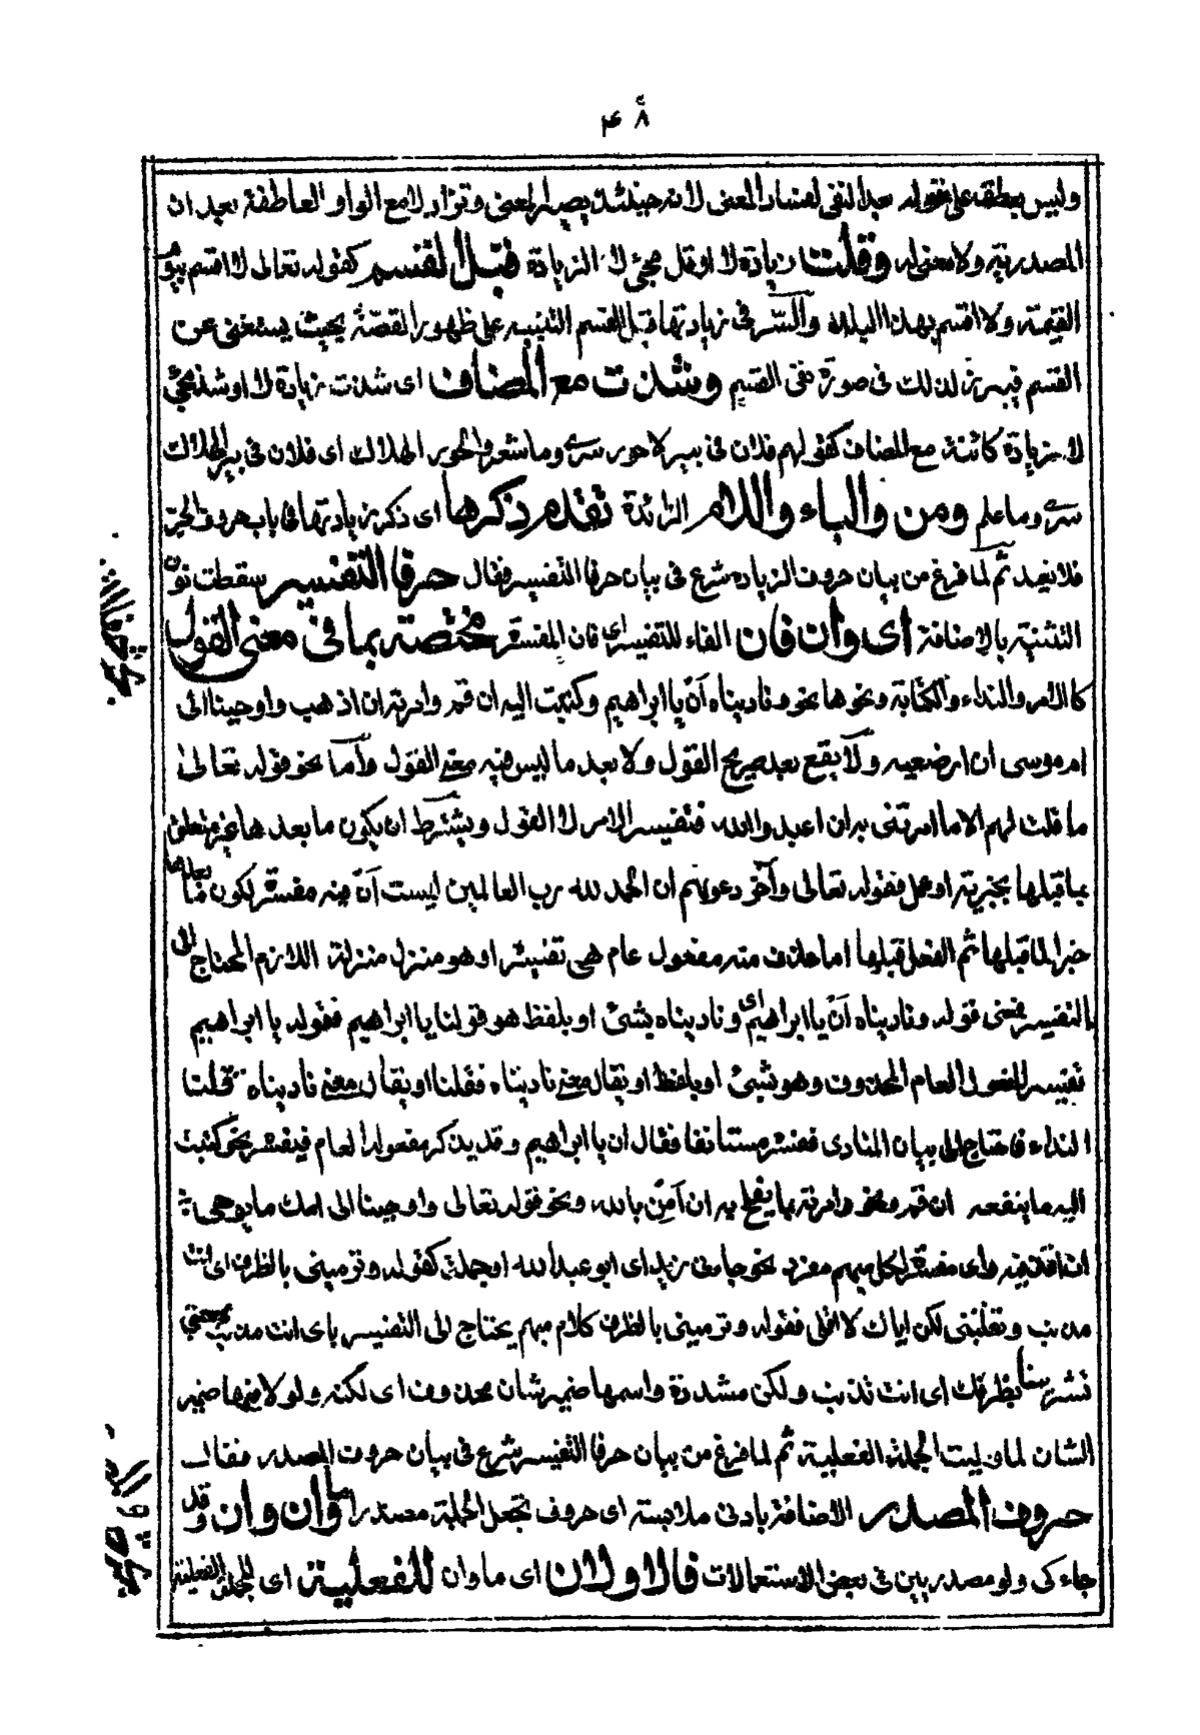 ٤٠٨
وليس بعطف على بعد النفى لفساد المعنى لانه حينئذ يصير المعنى وتزاد لا مع الواو العاطفة بعد ان
المصدرية ولا معنى له وقلت زيادة لا او قل مجئ لا الزيادة قبل القسم كقوله تعالى لا اقسم بيوم
القيمة ولا اقسم بهذا البلد والسر فى زيادتها قبل القسم التنبيه على ظهور القصة بحيث يستغنى عن
القسم فيبرز لذلك فى صورة نفى القسم وشذت مع المضاف اى شذت زيادة لا او شذ مجئ
لا زيادة كائنة مع المضاف كقولهم فلان فى بير لا حور سرى وما شعر والحور الهلاك اى فلان فى بير الهلاك
سرى وما علم ومن والباء واللام الزائدة تقدم ذكرها اى ذكر زيادتها فى باب حروف الجر
فلا نعيد ثم لما فرغ من بيان حروف الزيادة شرع فى بيان حرفا التفسير فقال حرفا التفسير سقطت نون
التثنية بالاضافة اى وان فان الفاء للتفسير اى فان المفسر مختصة بما فى معنى القول
كالامر والنداء والكتابة ونحوها نحو وناديناه ان يا ابراهيم وكتبت اليه ان قم وامرته ان اذهب واوحينا الى
ام موسى ان ارضعيه ولا يقع بعد صريح القول ولا بعد ما ليس فيه معنى القول واما نحو قوله تعالى
ما قلت لهم الا ما امرتنى به ان اعبدوا الله فتفسير الامر لا القول ويشترط ان يكون ما بعدها غير متعلق
بما قبلها بخبرية او عمل فقوله تعالى وآخر دعويهم ان الحمد لله رب العالمين ليست ان منه مفسر لكون ما بعدها
خبرا لما قبلها ثم الفعل قبلها اما حذف منه مفعول عام هى تفسيره او هو منزل منزلة اللازم المحتاج الى
التفسير فمعنى قوله وناديناه ان يا ابراهيم اى وناديناه بشئ او بلفظ هو قولنا يا ابراهيم فقوله يا ابراهيم
تفسير للمفعول العام المحذوف وهو شئ او بلفظ او يقال معنى ناديناه فقلنا او يقال معنى ناديناه فعلنا
النداء فاحتاج الى بيان المنادى ففسر مستانفا فقال ان يا ابراهيم وقد يذكر مفعوله العام فيفسر نحو كتبت
اليه ما ينفعه ان قم ونحو وامرته بما يفلح به ان آمن بالله ونحو قوله تعالى واوحينا الى امك ما يوحى
ان اقذفيه واى مفسر لكل مبهم مفرد نحو جاءنى زيد اى ابو عبد الله او جملة كقوله وترميننى بالطرف اى انت
مذنب وتقليننى لكن اياك لا اقلى فقوله وترميننى بالطرف كلام مبهم يحتاج الى التفسير باى انت مذنب بمعنى
تشير بنا بطرفك اى انت تذنب ولكن مشددة واسمها ضمير شان محذوف اى لكنه ولولا فيها ضمير
الشان لما وليت الجملة الفعلية ثم لما فرغ من بيان حرفا التفسير شرع فى بيان حروف المصدر فقال
حروف المصدر الاضافة بادنى ملابسة اى حروف تجعل الجملة مصدرا ما وان وان وقد
جاء كى ولو مصدريين فى بعض الاستعمالات فالاولان اى ما وان للفعلية اى للجملة الفعلية